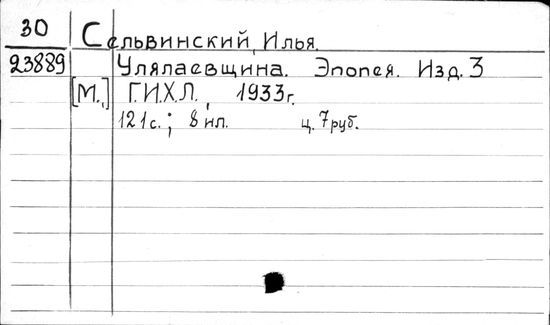 30 Сельвинский, Илья.
23889 Улялаевщина. Эпопея. Изд. 3
[М.,] Г.И.Х.Л., 1933г.
121с.; 8 ил. ц. 7 руб.